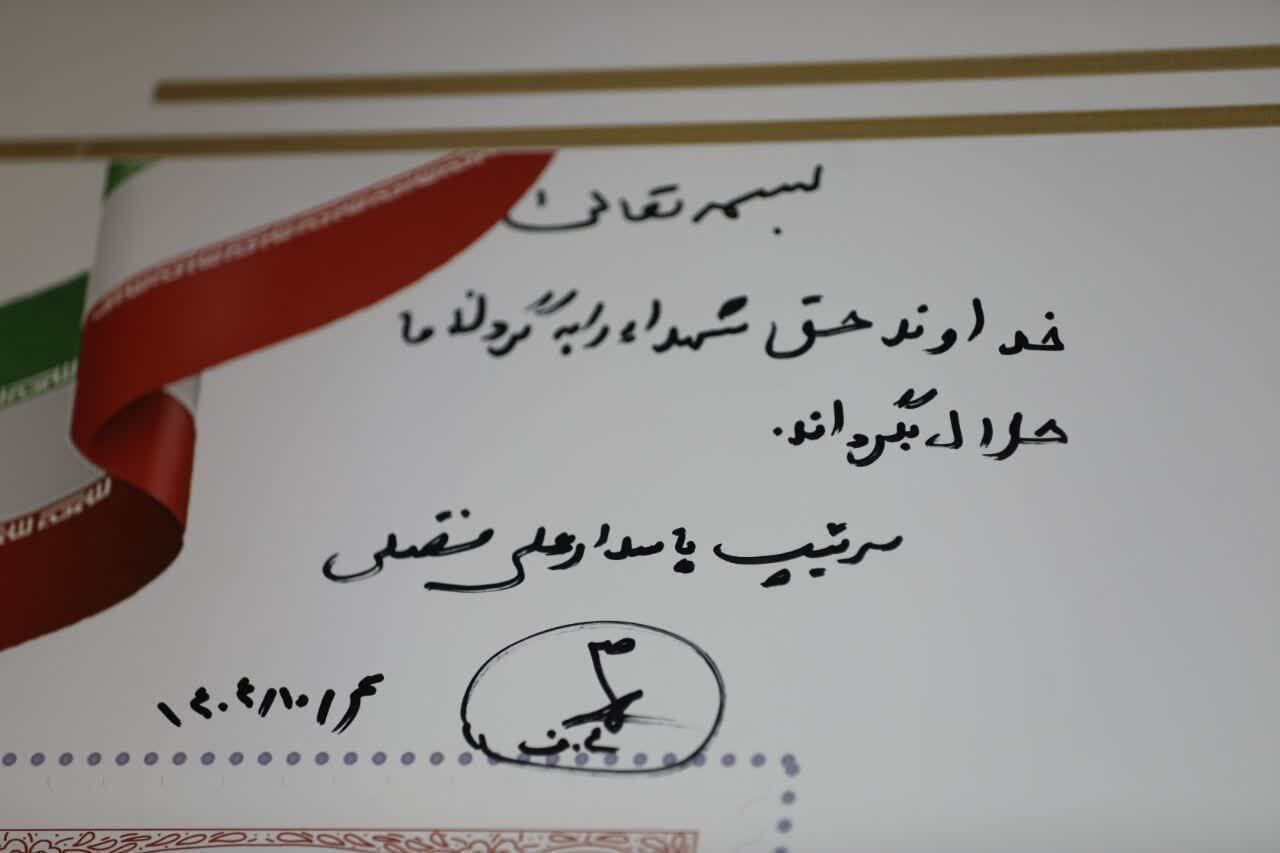 بسمه تعالی
خداوند حق شهداء را به گردن ما
حلال بگرداند.
سرتیپ پاسدار علی فضلی
ع.ف
۱۴۰۴/۱۰/